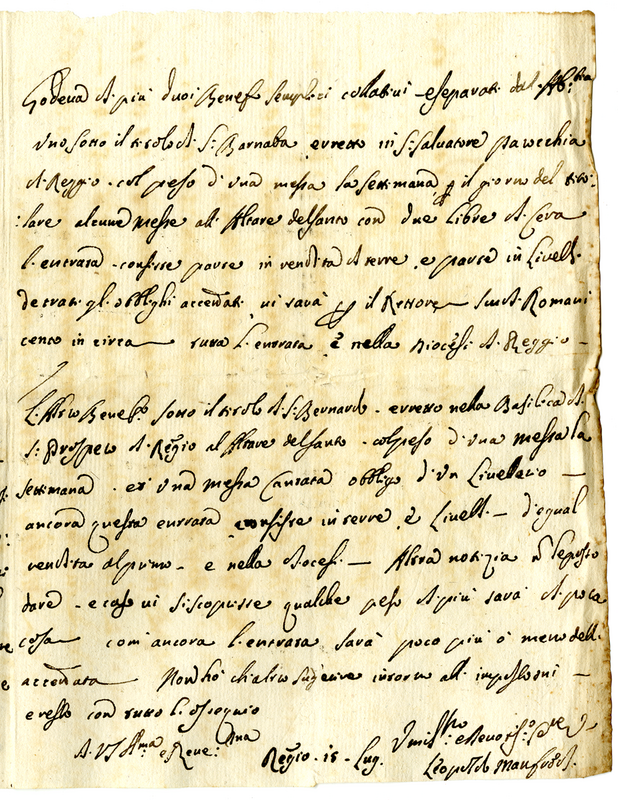 Godeva di più duoi Benef. semplici collativi e separati dal
Uno sotto il titolo di S: Barnaba erretto in S: Salvatore Parecchia
di Reggio - col peso d'una messa la settimana p il giorno del tito:
:lare alcune messe all'Altare del santo con due libre di Cera
l'entrata consiste parte in vendita di terre e parte in Livelli.
detrati gl'obblighi accennati vi sarà p il Rettore Scudi Romani
cento in circa tutta l'entrata è nella Diocesi di Reggio -
L'Altro Benef.o sotto il titolo di S: Bernardo - erretto nella Basilica di
S: Prospero di Reggio al Altare del santo - col peso d'una messa la
settimana - et una messa Cantata obbligo d'un Livellario -
ancora questa entrata consiste in terre, e Livelli - d'egual
rendita al primo - e nella diocesi - Altra notizia n le posso
dare - e caso vi si scoprisse qualche peso di più sarà di poca
cosa com'ancora l'entrata sarà poco più ò meno dell'
accennata Non hò ch'altro sugerire intorno all'
e resto con tutto l'ossequio
A. VS Ill.ma e Reve:ma
Reggio - 15 - Lug.
Umiss.mo e
Leopoldo Manfredi.